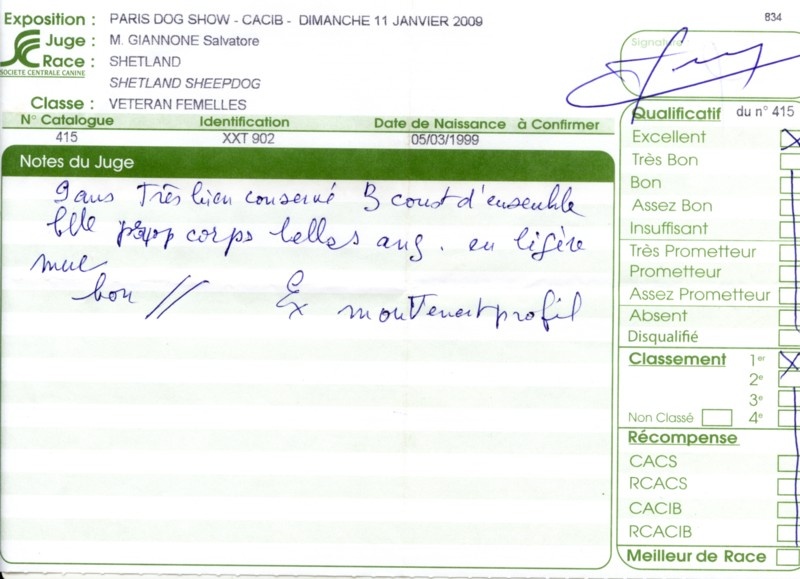 834
Exposition : PARIS DOG SHOW - CACIB - DIMANCHE 11 JANVIER 2009
Juge : M. GIANNONE Salvatore
Race : SHETLAND
SOCIETE CENTRALE CANINE
SHETLAND SHEEPDOG
Classe : VETERAN FEMELLES
N° Catalogue Identification Date de Naissance à Confirmer
415 XXT 902 05/03/1999
Notes du Juge
9 ans Très bien conservé B const d'ensemble
blle prop corps belles ang. en ligère
mue
bon // Ex mouvement profil
Signature
Qualificatif du n° 415
Excellent
Très Bon
Bon
Assez Bon
Insuffisant
Très Prometteur
Prometteur
Assez Prometteur
Absent
Disqualifié
Classement 1er
2e
3e
Non Classé 4e
Récompense
CACS
RCACS
CACIB
RCACIB
Meilleur de Race